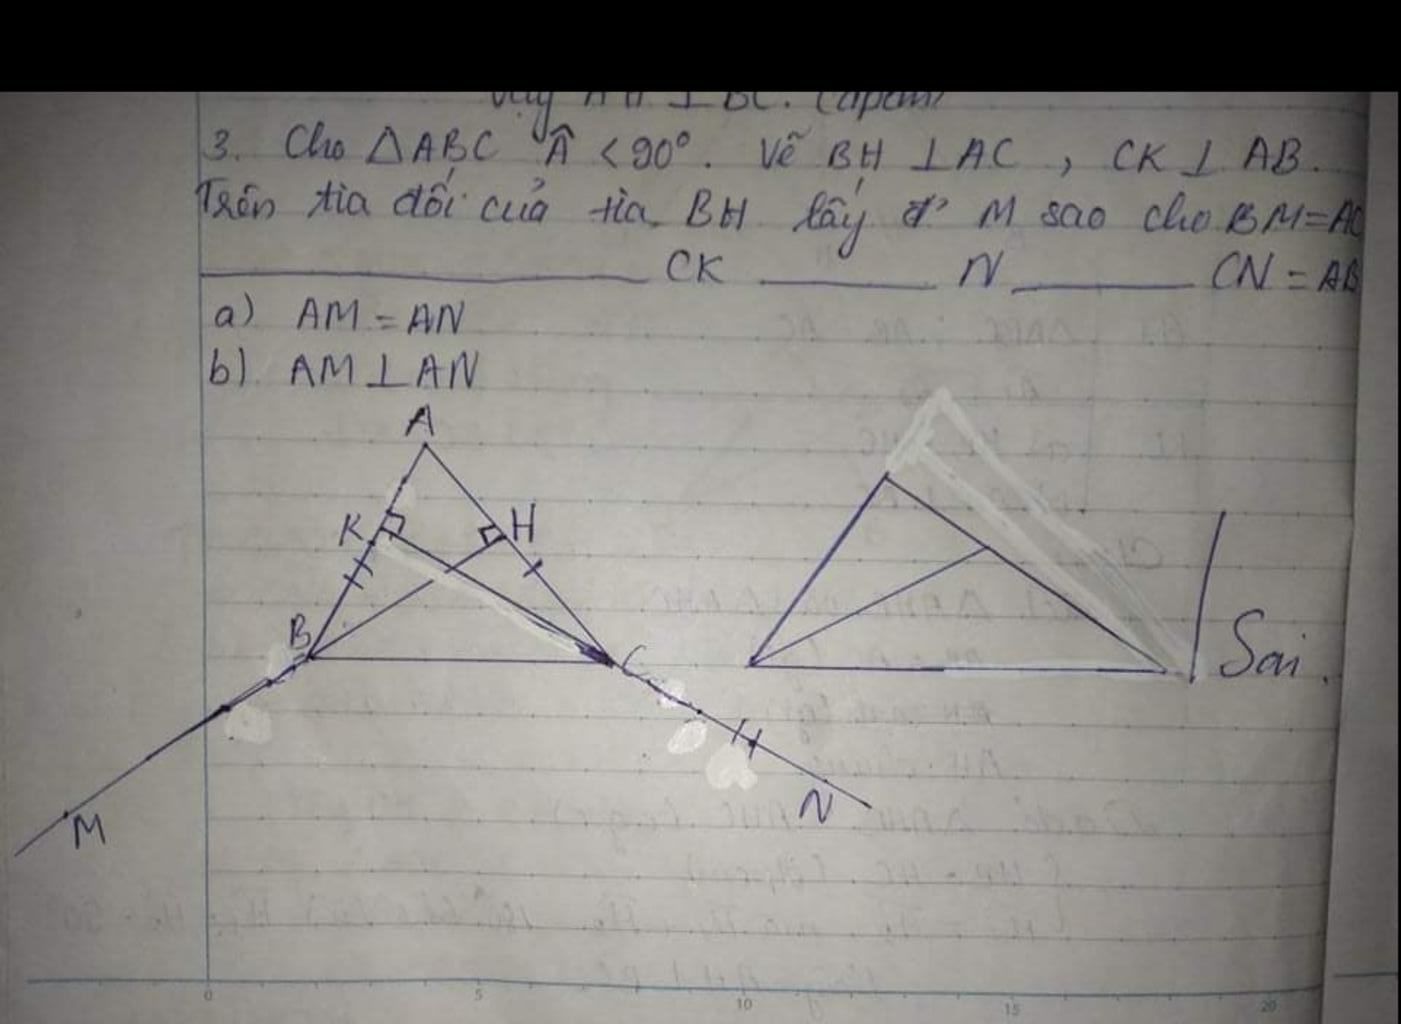 Vậy AH ⊥ BC. (đpcm)
3. Cho △ABC Â < 90°. Vẽ BH ⊥ AC, CK ⊥ AB.
Trên tia đối của tia BH lấy đ' M sao cho BM = AC
CK N CN = AB
a) AM = AN
b) AM ⊥ AN
A
K H
B C
Sai.
M N
0 5 10 15 20